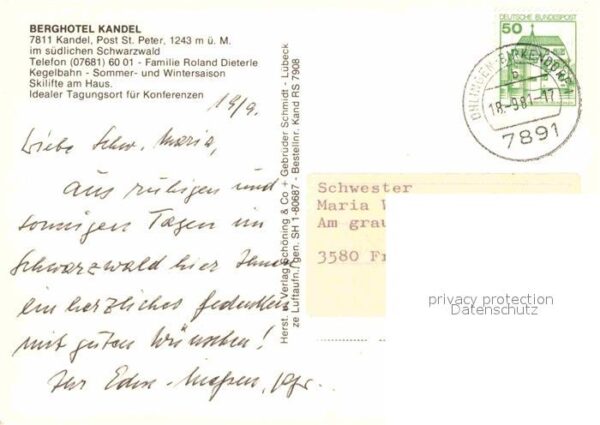 BERGHOTEL KANDEL
7811 Kandel, Post St. Peter, 1243 m ü. M.
im südlichen Schwarzwald
Telefon (07681) 60 01 - Familie Roland Dieterle
Kegelbahn - Sommer- und Wintersaison
Skilifte am Haus.
Idealer Tagungsort für Konferenzen
19/9.
Liebe Schw. Maria,
aus ruhigen und
sonnigen Tagen im
Schwarzwald hier Ihnen
ein herzliches Gedenken
mit guten Wünschen!
Ihr
Herst. u. Verlag Schöning & Co + Gebrüder Schmidt - Lübeck
ze Luftaufn./gen. SH 1-80687 - Bestellnr. Kand RS 7908
50
DEUTSCHE BUNDESPOST
ÜHLINGEN-BIRKENDORF
b
18.-9.81-17
7891
Schwester
Maria
Am
3580
privacy protection
Datenschutz